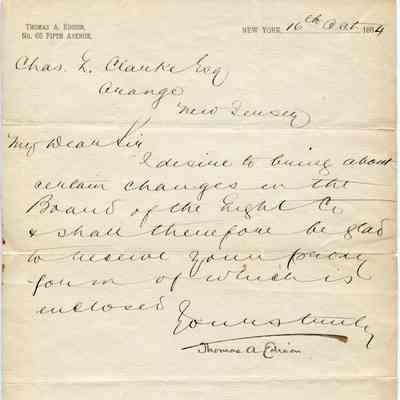 THOMAS A. EDISON,
No. 65 FIFTH AVENUE,
NEW YORK, 16th Oct 1884
Chas. L. Clarke Esq
Orange
New Jersey
My Dear Sir
I desire to bring about
certain changes in the
Board of the Light Co
& shall therefore be glad
to receive your proxy
form of which is
enclosed
Yours truly
Thomas A Edison